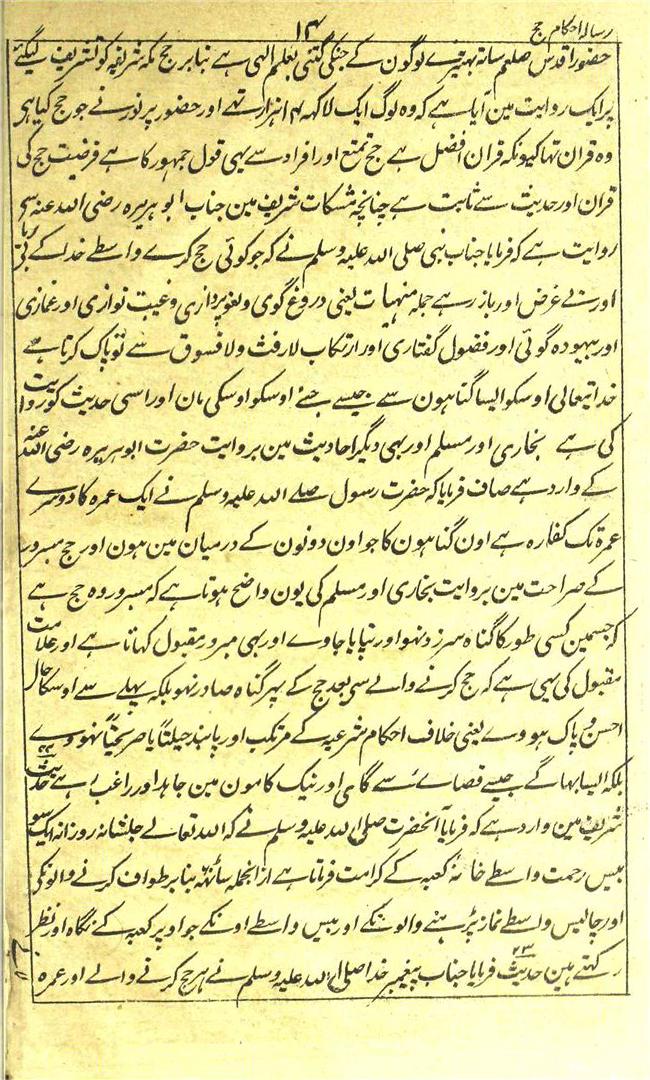 رسالہ احکام حج
۱۴
حضور اقدس صلعم ساتہہ بہتیرے لوگون کے جنکی گنتی بعلم الہی ہے بنا بر حج مکہ شریفہ کو تشریف لیگئے
پر ایک روایت مین آیا ہے کہ وہ لوگ ایک لاکہہ ہزار تہے اور حضور پر نور نے جو حج کیا ہی
وہ قران تہا کیونکہ قران افضل ہے حج تمتع اور افراد سے یہی قول جمہور کا ہے فرضیت حج کی
قران اور حدیث سے ثابت ہے چنانچہ مشکات شریف مین جناب ابو ہریرہ رضی اللہ عنہ سی
روایت ہے کہ فرمایا جناب نبی صلی اللہ علیہ وسلم نے کہ جو کوئی حج کرے واسطے خدا کے بی ریا
اور بے غرض اور باز رہے جملہ منہیات یعنی دروغ گوی ولغو پردازی وغیبت نوازی اور غمازی
اور بیہودہ گوئی اور فضول گفتاری اور ارتکاب لا رفث ولا فسوق سے تو پاک کرتا ہے
خدا تیعالی اوسکو ایسا گناہون سے جیسے جنے اوسکو اوسکی مان اور اسی حدیث کو روایت
کی ہے بخاری اور مسلم اور بہی دیگر احادیث مین بروایت حضرت ابو ہریرہ رضی اللہ عنہ
کے وارد ہے صاف فرمایا کہ حضرت رسول صلے اللہ علیہ وسلم نے ایک عمرہ کا دوسرے
عمرۃ تک کفارہ ہے اون گناہون کا جو اون دونون کے درمیان مین ہون اور حج مبرور
کے صراحت مین بروایت بخاری اور مسلم کی یون واضح ہوتا ہے کہ مبرور وہ حج ہے
کہ جسمین کسی طور کا گناہ سرزد نہو اور نپایا جاوے اور یہی مبرور مقبول کہاتا ہے اور علامت
مقبول کی یہی ہے کہ حج کرنے والے سی بعد حج کے پہر گناہ صادر نہو بلکہ پہلے سے اوسکا حال
احسن و پاک ہووے یعنی خلاف احکام شرعیہ کے مرتکب اور پابند حیلتاً یا صریحتاً نہووے
بلکہ ایسا بہاگے جیسے قصائے سے گای اور نیک کامون مین جاہد اور راغب رہے حدیث ۲۲
شریف مین وارد ہے کہ فرمایا آنحضرت صلی اللہ علیہ وسلم نے کہ اللہ تعالے جلشانہ روزانہ ایک سو
بیس رحمت واسطے خانہ کعبہ کے کرامت فرماتا ہے ازانجملہ ساٹہہ بنا بر طواف کرنے والونکی
اور چالیس واسطے نماز پڑہنے والونکے اور بیس واسطے اونکے جو اوپر کعبہ کے نگاہ اور نظر
رکہتے ہین حدیث ۲۳ فرمایا جناب پیغمبر خدا صلی اللہ علیہ وسلم نے ہر حج کرنے والے اور عمرہ